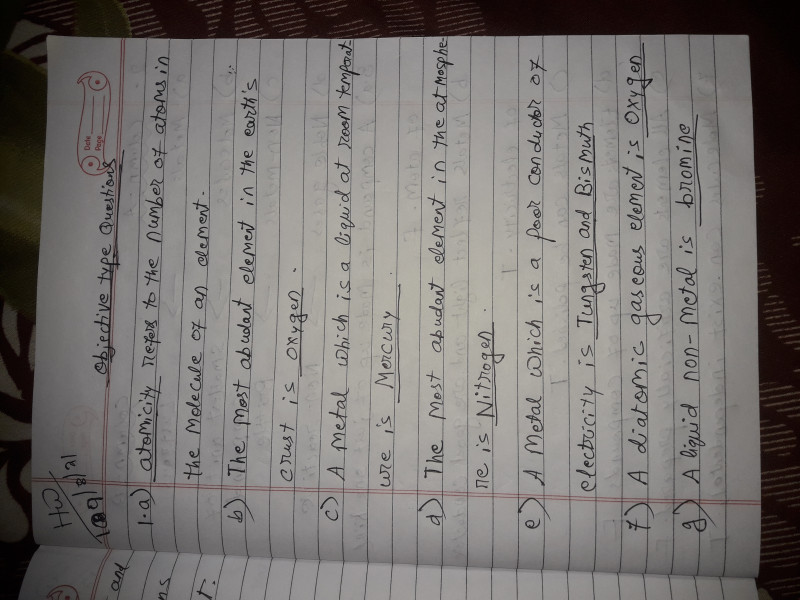 HW
9/8/21
Date
Page
Objective type Questions
1.a) atomicity refers to the number of atoms in
the molecule of an element.
b) The most abudant element in the earth's
crust is oxygen.
c) A metal which is a liquid at room temperat-
ure is Mercury.
d) The most abudant element in the atmosphe-
re is Nitrogen.
e) A metal which is a poor conductor of
electricity is Tungsten and Bismuth
f) A diatomic gaseous element is Oxygen
g) A liquid non-metal is bromine
and
ns
t.